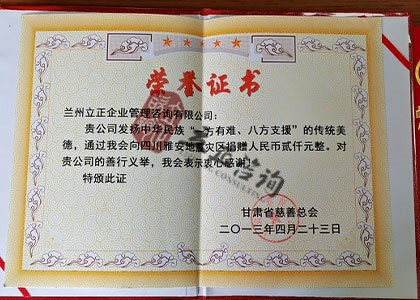 荣誉证书
兰州立正企业管理咨询有限公司：
贵公司发扬中华民族“一方有难、八方支援”的传统美
德，通过我会向四川雅安地震灾区捐赠人民币贰仟元整。对
贵公司的善行义举，我会表示衷心感谢！
特颁此证
甘肃省慈善总会
二〇一三年四月二十三日
立正咨询